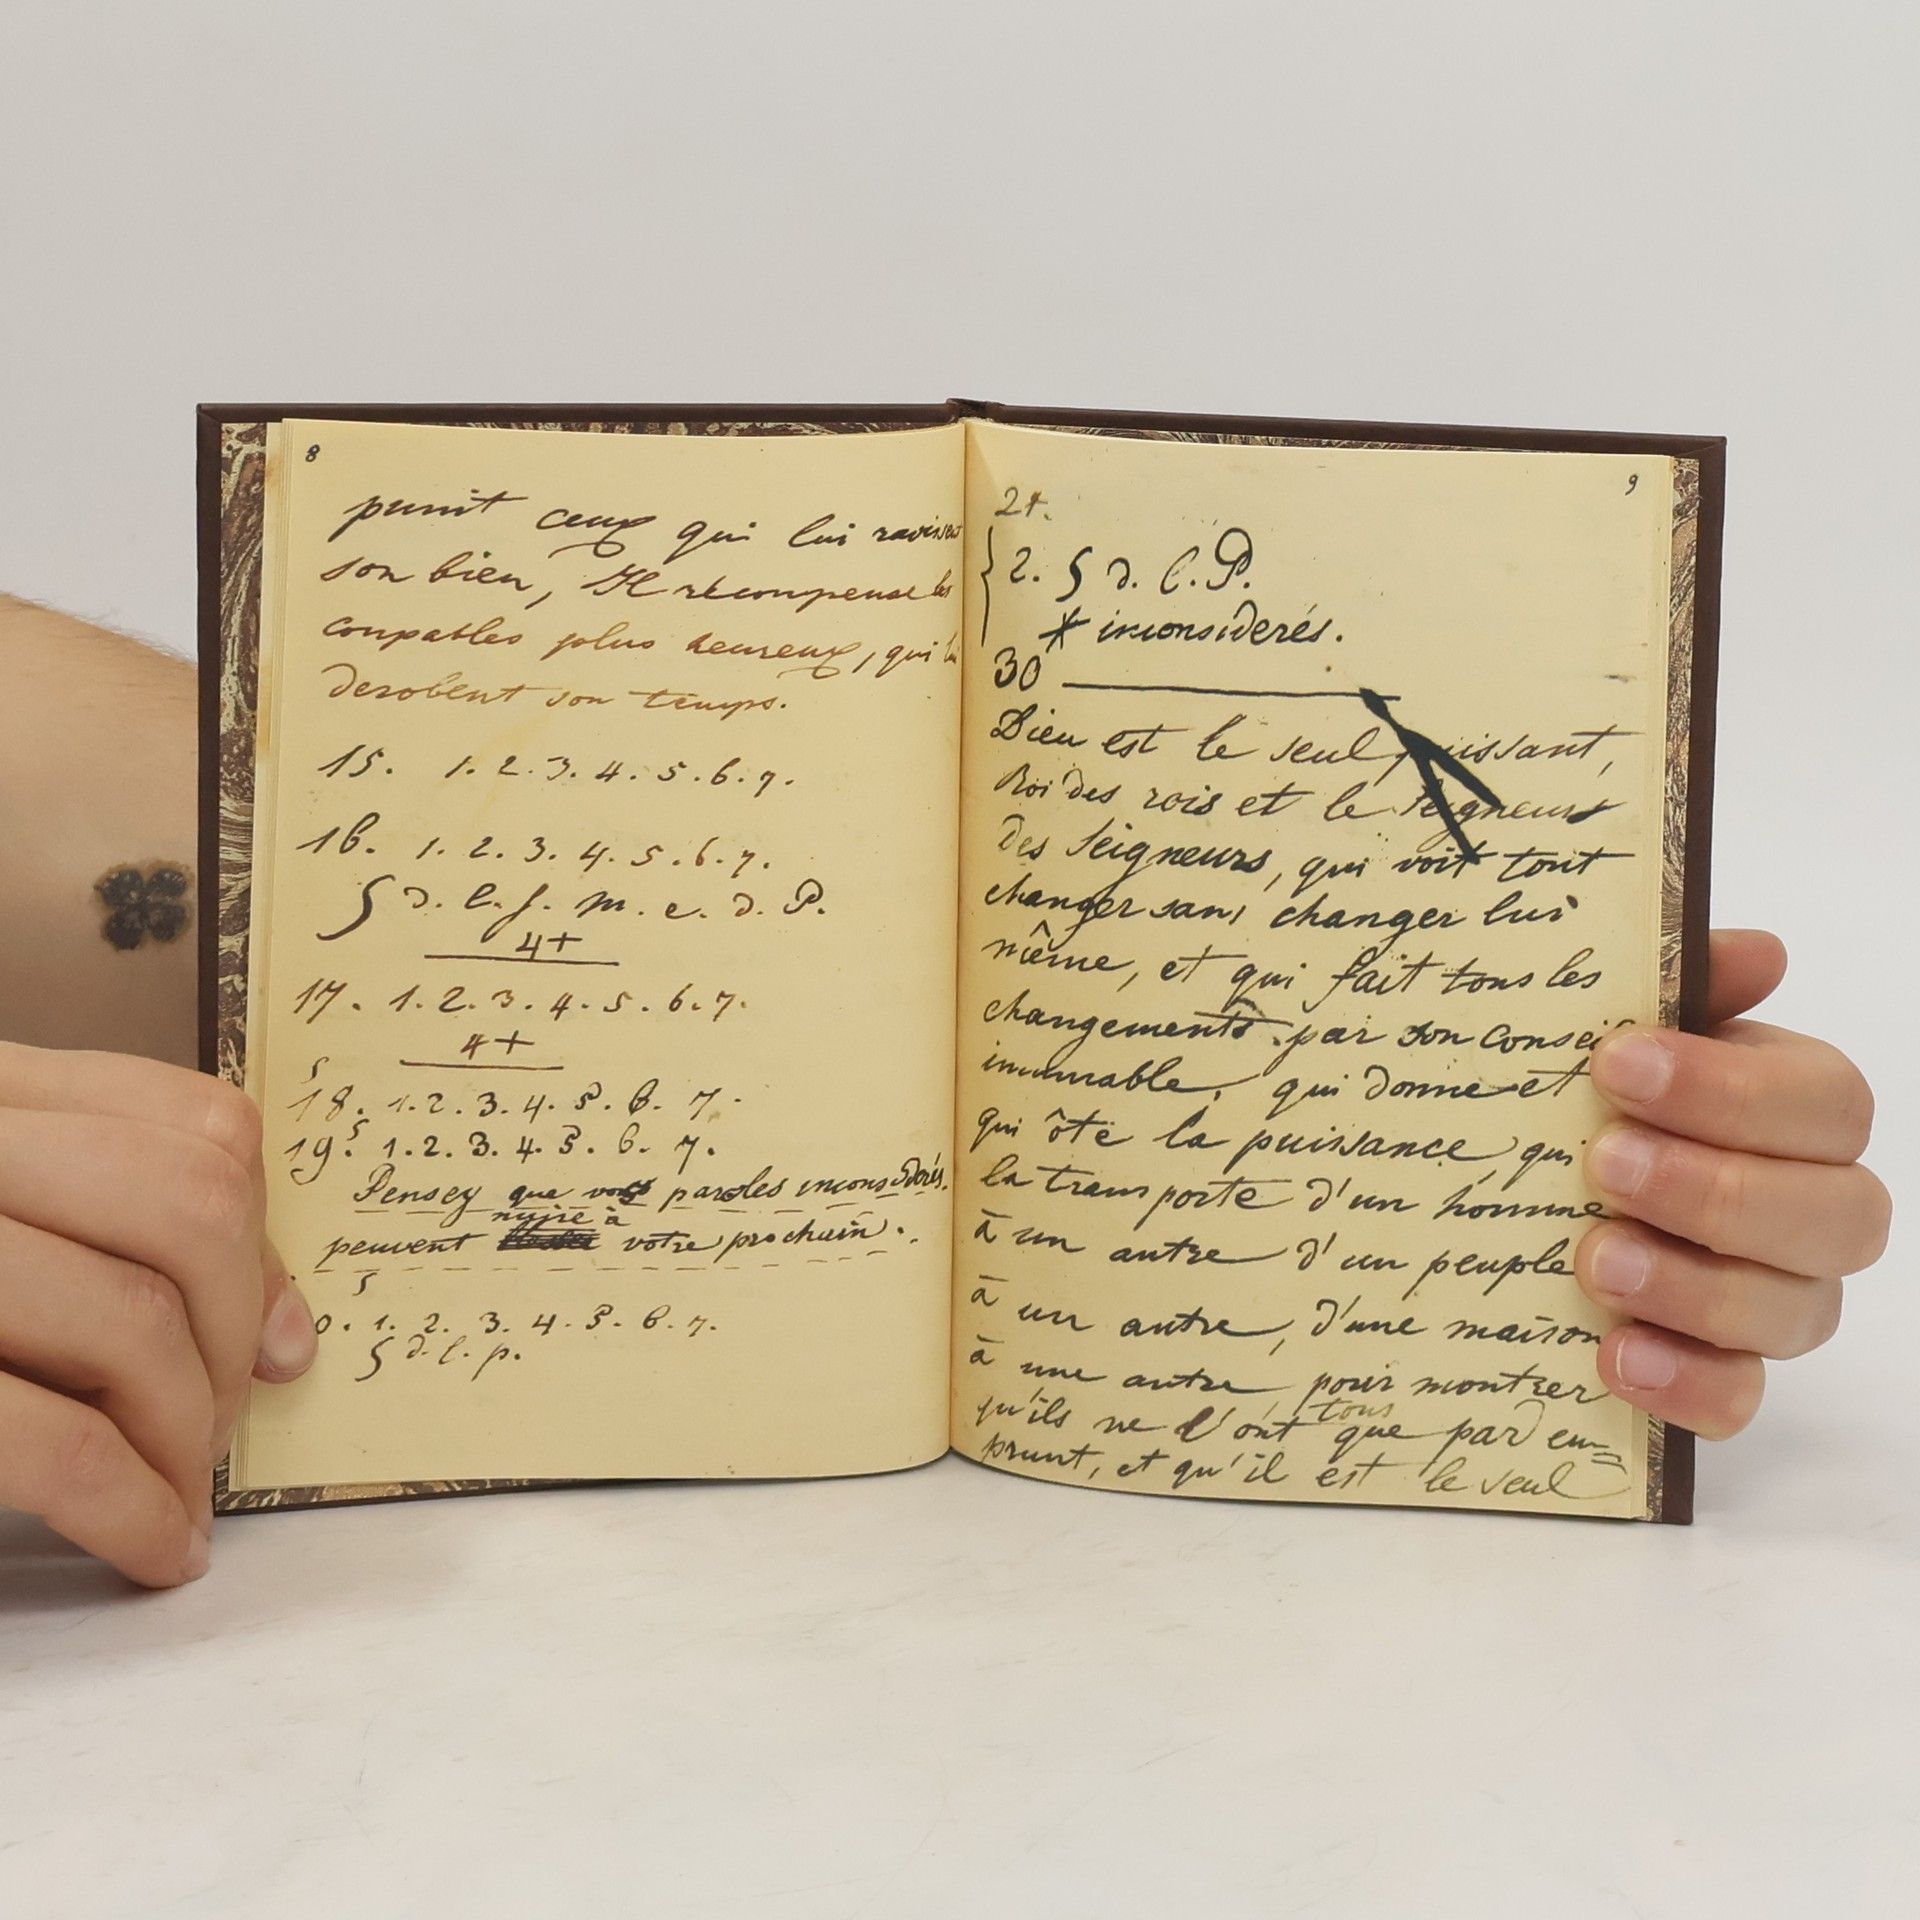 8
punit ceux qui lui ravissent
son bien, Il recompense les
coupables plus heureux, qui lui
derobent son temps.
15. 1. 2. 3. 4. 5. 6. 7.
16. 1. 2. 3. 4. 5. 6. 7.
§ d. l. f. m. e. d. P.
4+
17. 1. 2. 3. 4. 5. 6. 7.
4+
18. 1. 2. 3. 4. 5. 6. 7.
19. 1. 2. 3. 4. 5. 6. 7.
Pensey que vos paroles inconsiderés.
nuire à
peuvent votre prochain.
0. 1. 2. 3. 4. 5. 6. 7.
§ d. l. p.
9
2+.
2. § d. l. P.
* inconsiderés.
30
Dieu est le seul puissant,
Roi des rois et le Seigneur
des Seigneurs, qui voit tout
changer sans changer lui
même, et qui fait tous les
changements par son Conseil
immuable, qui donne et
qui ôte la puissance, qui
la transporte d'un homme
à un autre d'un peuple
à un autre, d'une maison
à une autre, pour montrer
tous
qu'ils ne l'ont que par em=
prunt, et qu'il est le seul